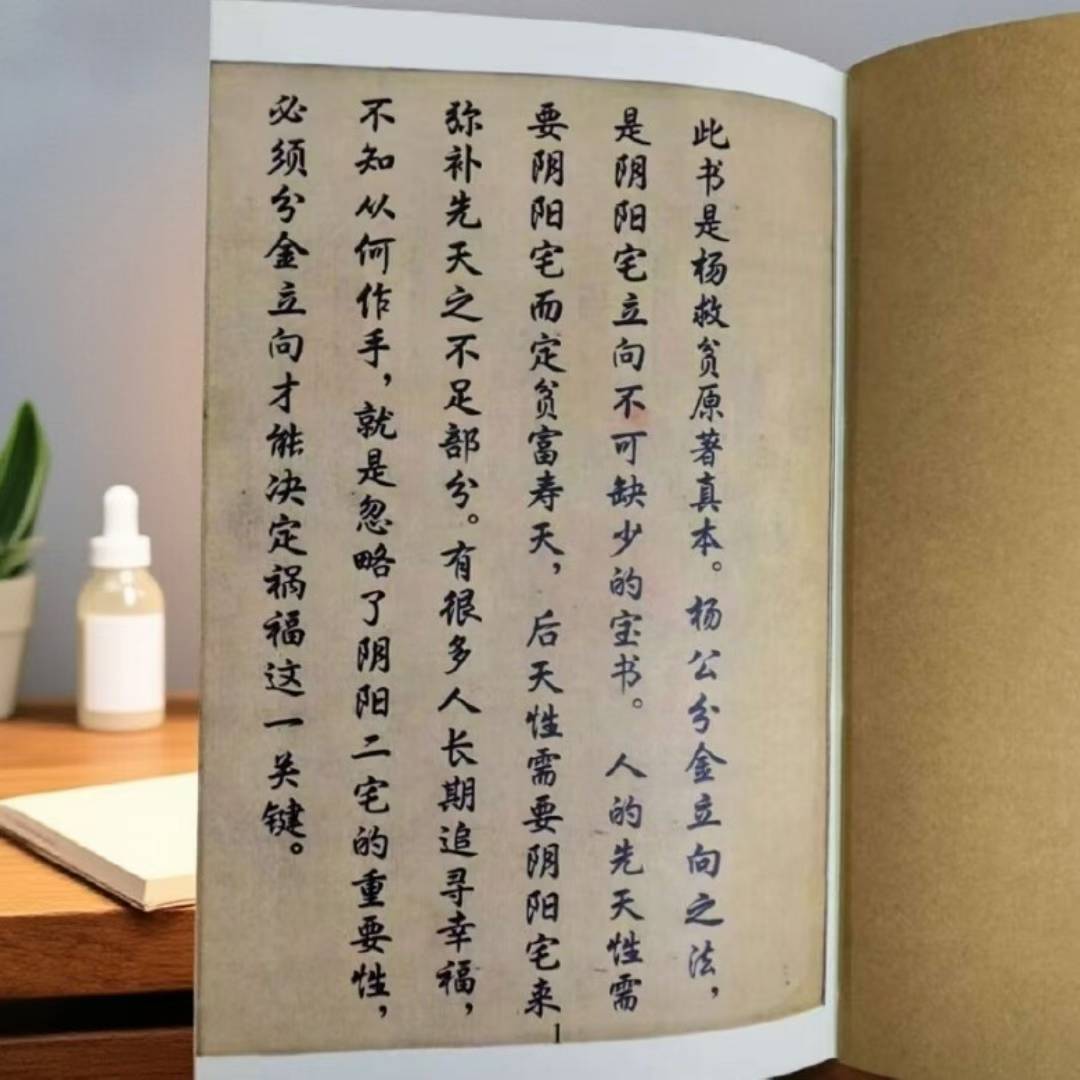 此书是杨救贫原著真本。杨公分金立向之法，
是阴阳宅立向不可缺少的宝书。人的先天性需
要阴阳宅而定贫富寿夭，后天性需要阴阳宅来
弥补先天之不足部分。有很多人长期追寻幸福，
不知从何作手，就是忽略了阴阳二宅的重要性，
必须分金立向才能决定祸福这一关键。
1